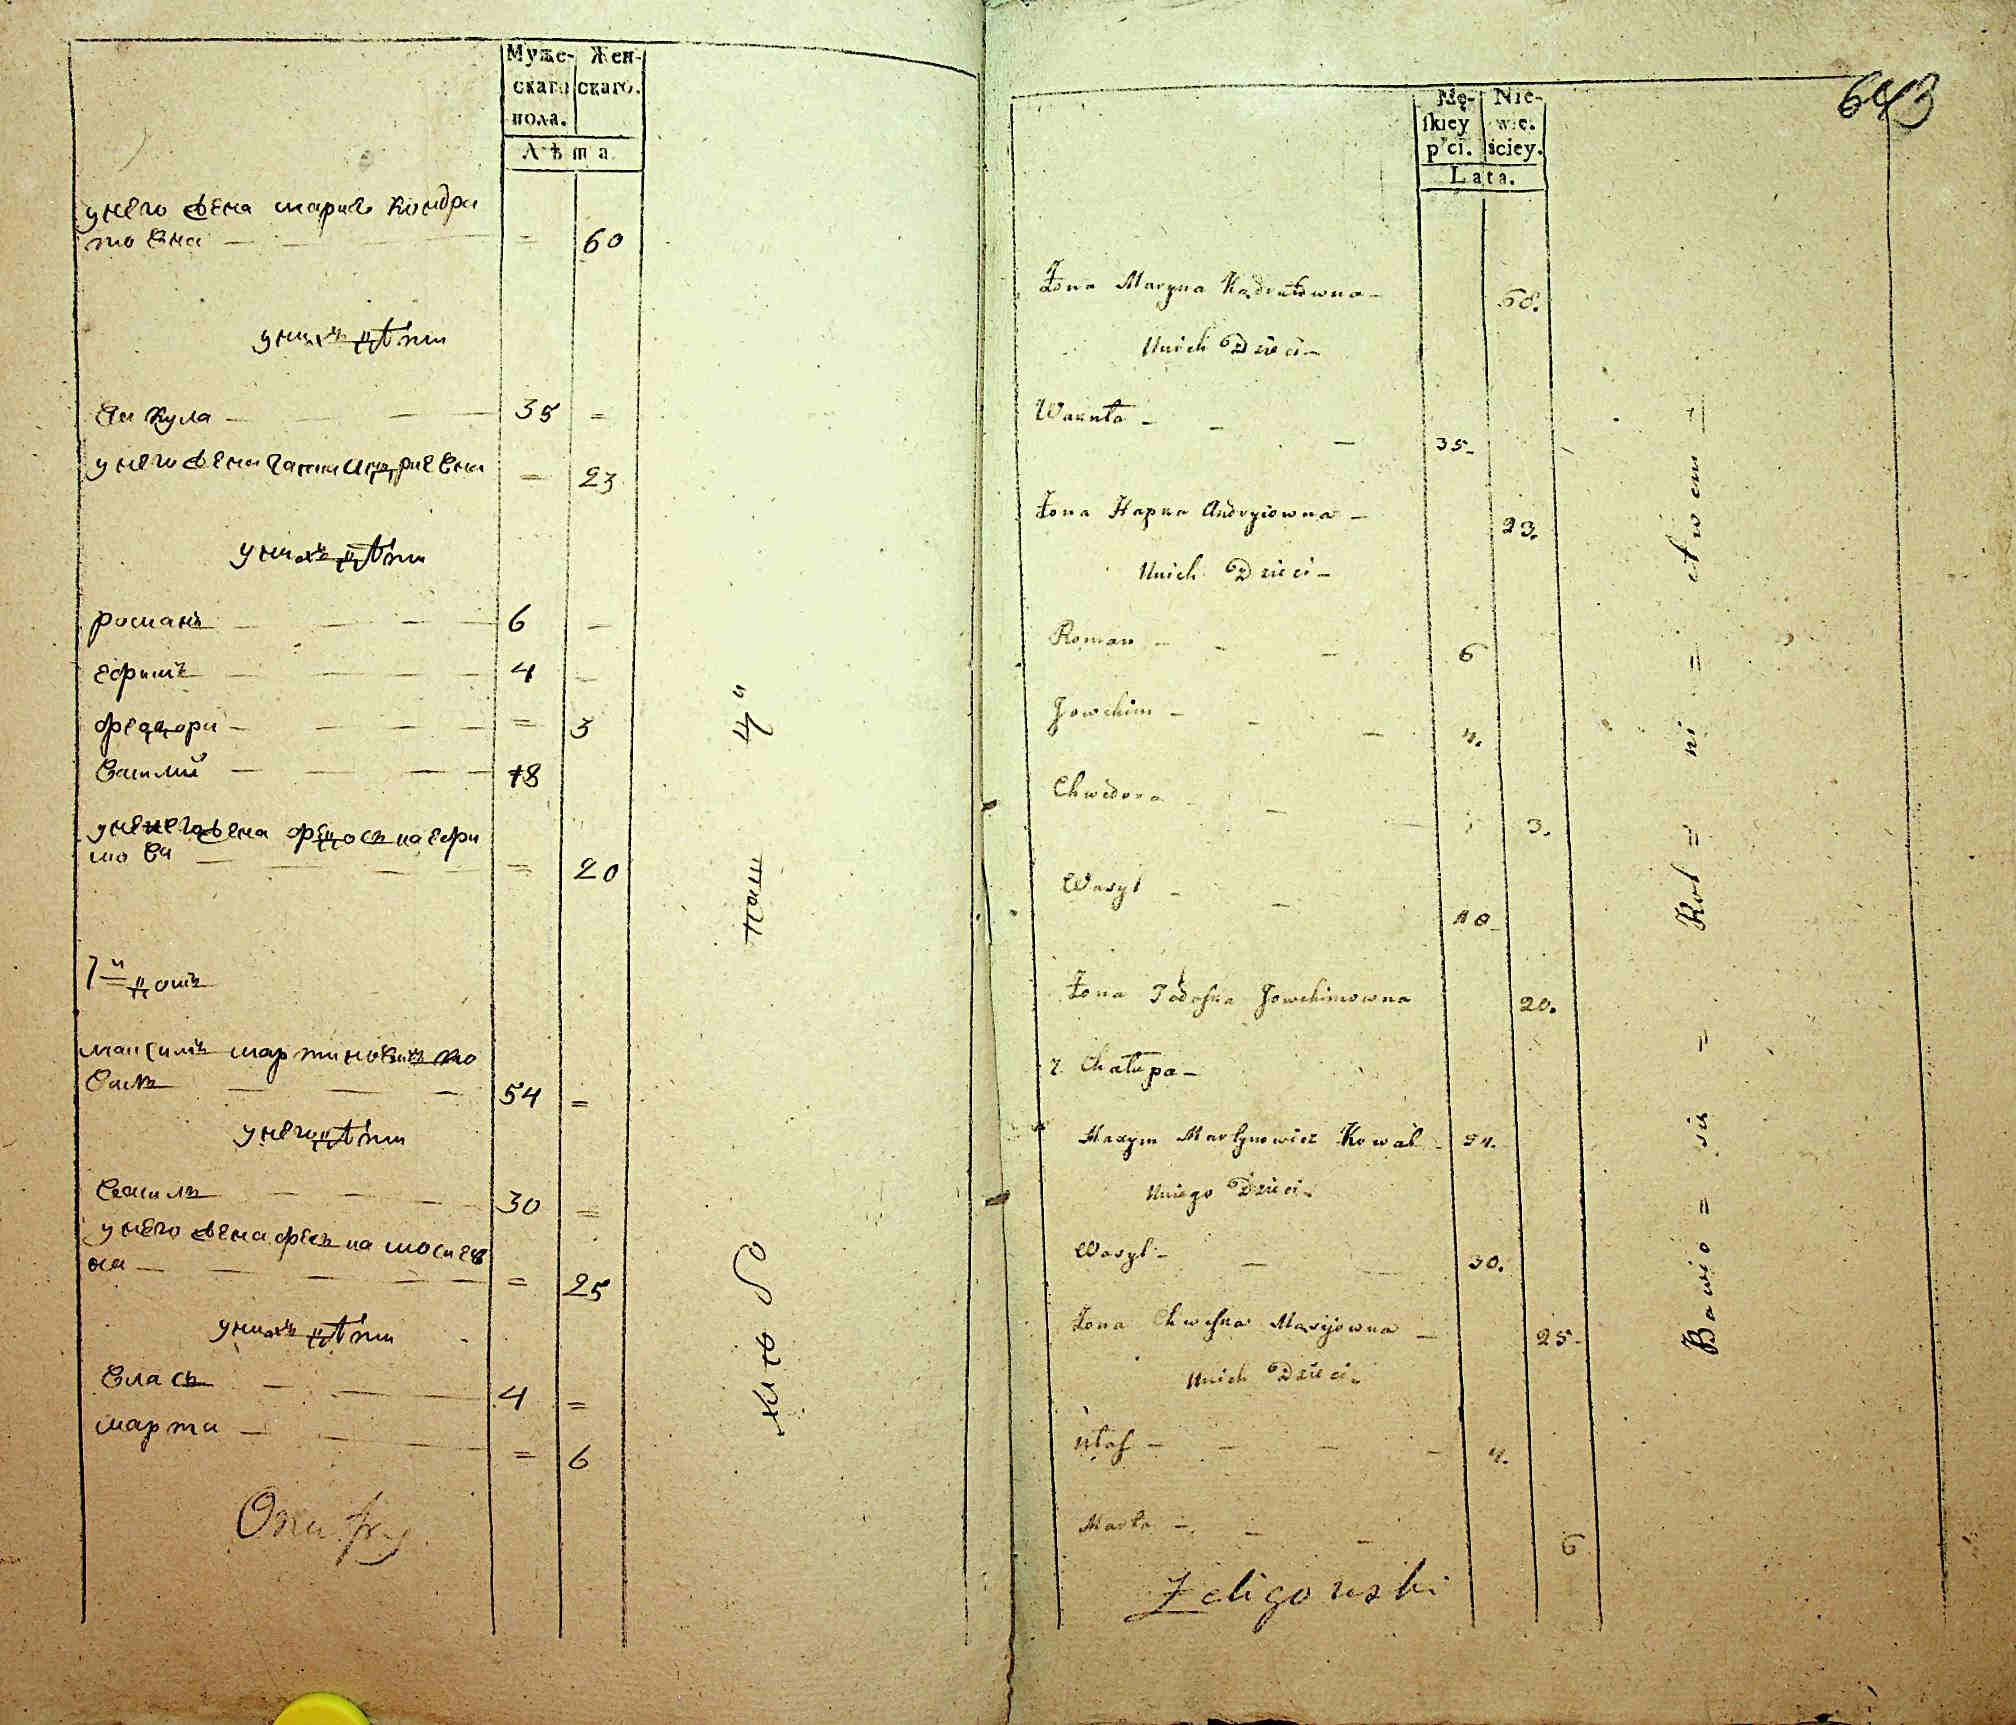 Муже- Жен-
скаго скаго.
пола.
Лѣта.
унего жена мария кондра
товна — = 60
унихъ дѣти
Вакула — 35 =
унего жена гапка андриевна = 23
унихъ дѣти
романъ — 6 —
ефимъ — 4 —
федора — = 3
василий — 18
унего жена федоська ефи
мова — = 20
7й домъ
максимъ мартиновичъ ко
валь — 54 =
унего дѣти
василь — 30 =
унего жена феська мосиев
на — = 25
унихъ дѣти
власъ — 4 =
марта — = 6
643
Mę- Nie-
skiey wie.
płci. sciey.
Lata.
Żona Maryna Kądratowna — 60.
Unich Dzieci —
Wakuła — 35.
Żona Hapka Andryiowna — 23.
Unich Dzieci —
Roman — 6
Jowchim — 4.
Chwedora — 3.
Wasyl — 18
Żona Todoska Jowchimowna 20.
7. Chałupa —
Maxym Martynowicz Kowal 54.
Uniego Dzieci —
Wasyl — 30.
Żona Chweska Mosijowna — 25.
Unich Dzieci —
Ułas — 4.
Marta — 6
Żeligowski